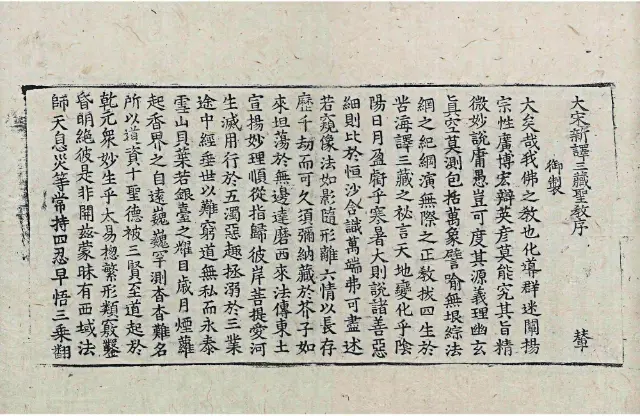 大宋新譯三藏聖教序
御製
大矣哉我佛之教也化導群迷闡揚
宗性廣博宏辯英彦莫能究其旨精
微妙說庸愚豈可度其源義理幽玄
眞空莫測包括萬象譬喻無垠綜法
網之紀綱演無際之正教拔四生於
苦海譯三藏之秘言天地變化乎陰
陽日月盈虧乎寒暑大則說諸善惡
細則比於恒沙含識萬端弗可盡述
若窺像法如影隨形離六情以長存
歷千劫而可久須彌納藏於芥子如
來坦蕩於無邊達磨西來法傳東土
宣揚妙理順從指歸彼岸菩提愛河
生滅用行於五濁惡趣拯溺於三業
途中經垂世以難窮道無私而永泰
雪山貝葉若銀臺之耀目歲月煙蘿
起香界之自遠巍巍罕測杳杳難名
所以揩資十聖德被三賢至道起於
乾元衆妙生乎太易揔繁形類竅鑿
昏明絕彼是非開兹蒙昧有西域法
師天息災等常持四忍早悟三乘翻